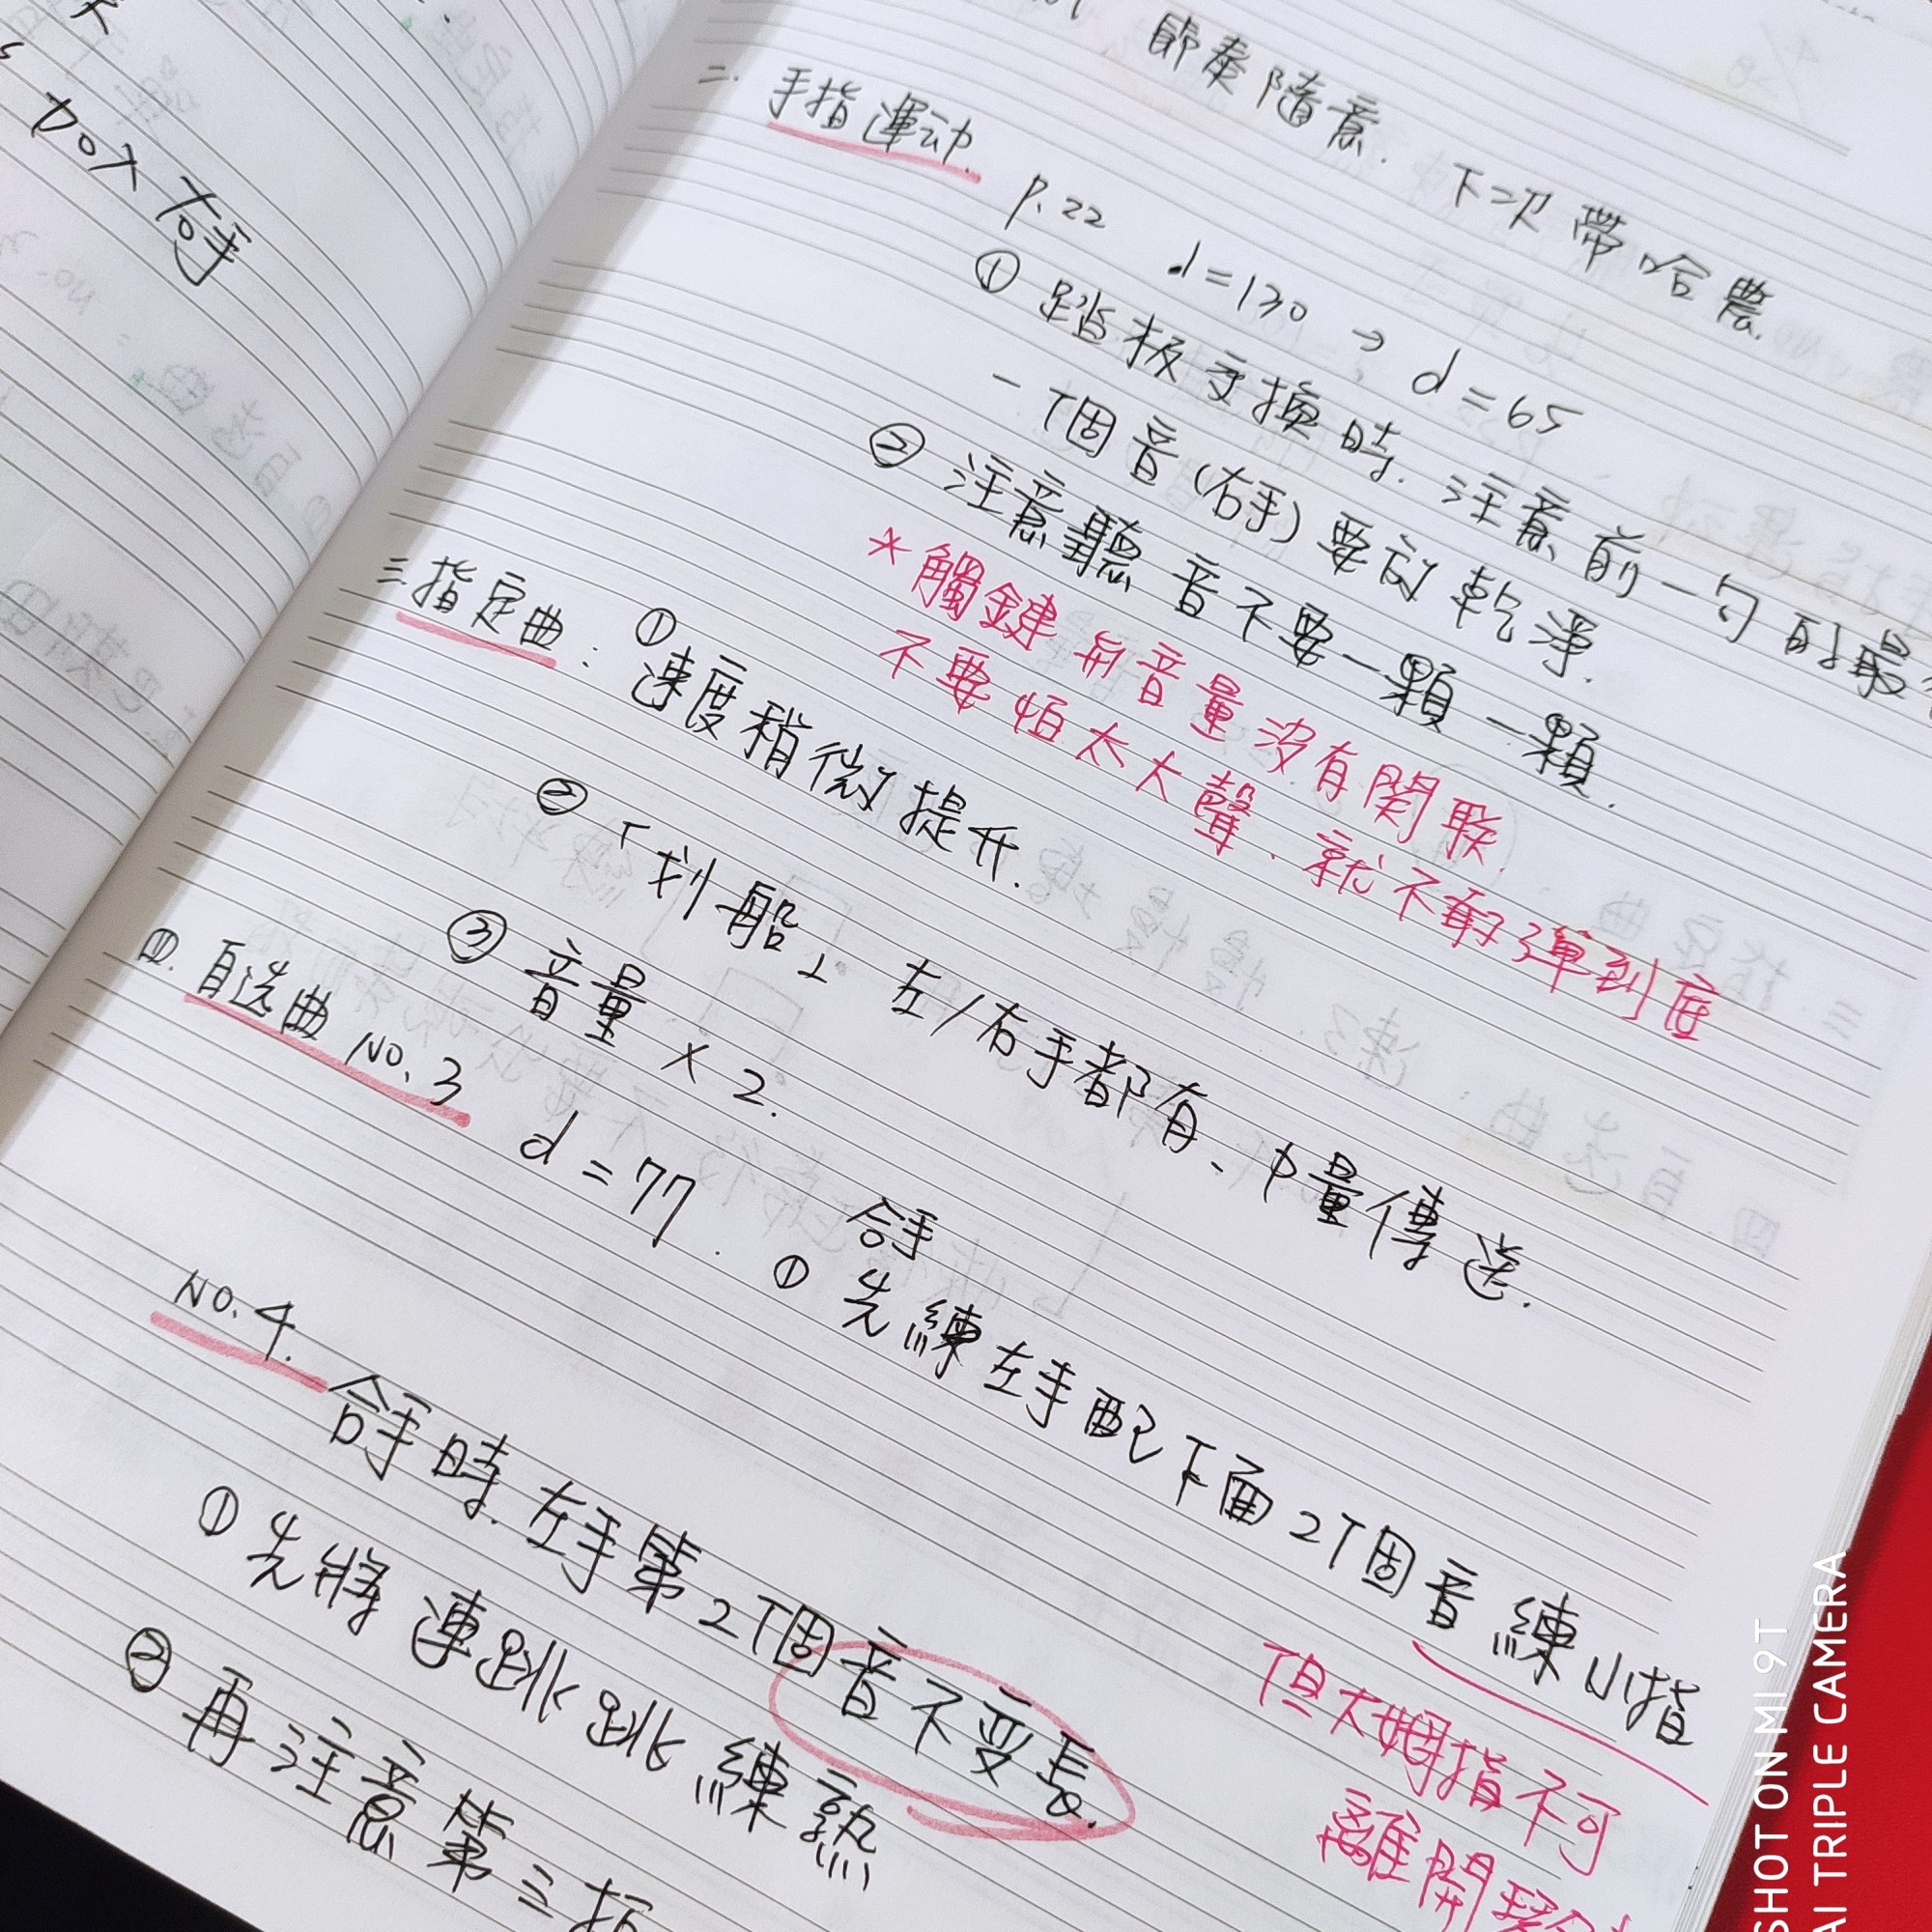 加入右手
節奏隨意. 下次帶哈農.
二. 手指運动.
p.22 ♩=130 → d=65
① 踏板交換時. 注意前一句的最
一個音(右手)要訂乾淨.
② 注意聽音不要一顆一顆.
*觸鍵和音量沒有関聯
不要怕太大聲、就不敢彈到底
三 指定曲: ① 速度稍微提升.
② 「划船」左/右手都有、力量傳送.
③ 音量 × 2.
四. 自选曲 NO.3
d=77. 合手
① 先練左手配下面2個音練小指
但大姆指不可
離開
NO.4.
合手時. 左手第2個音不变長.
① 先將連跳跳練熟
② 再注意第三指
SHOT ON MI 9T
AI TRIPLE CAMERA